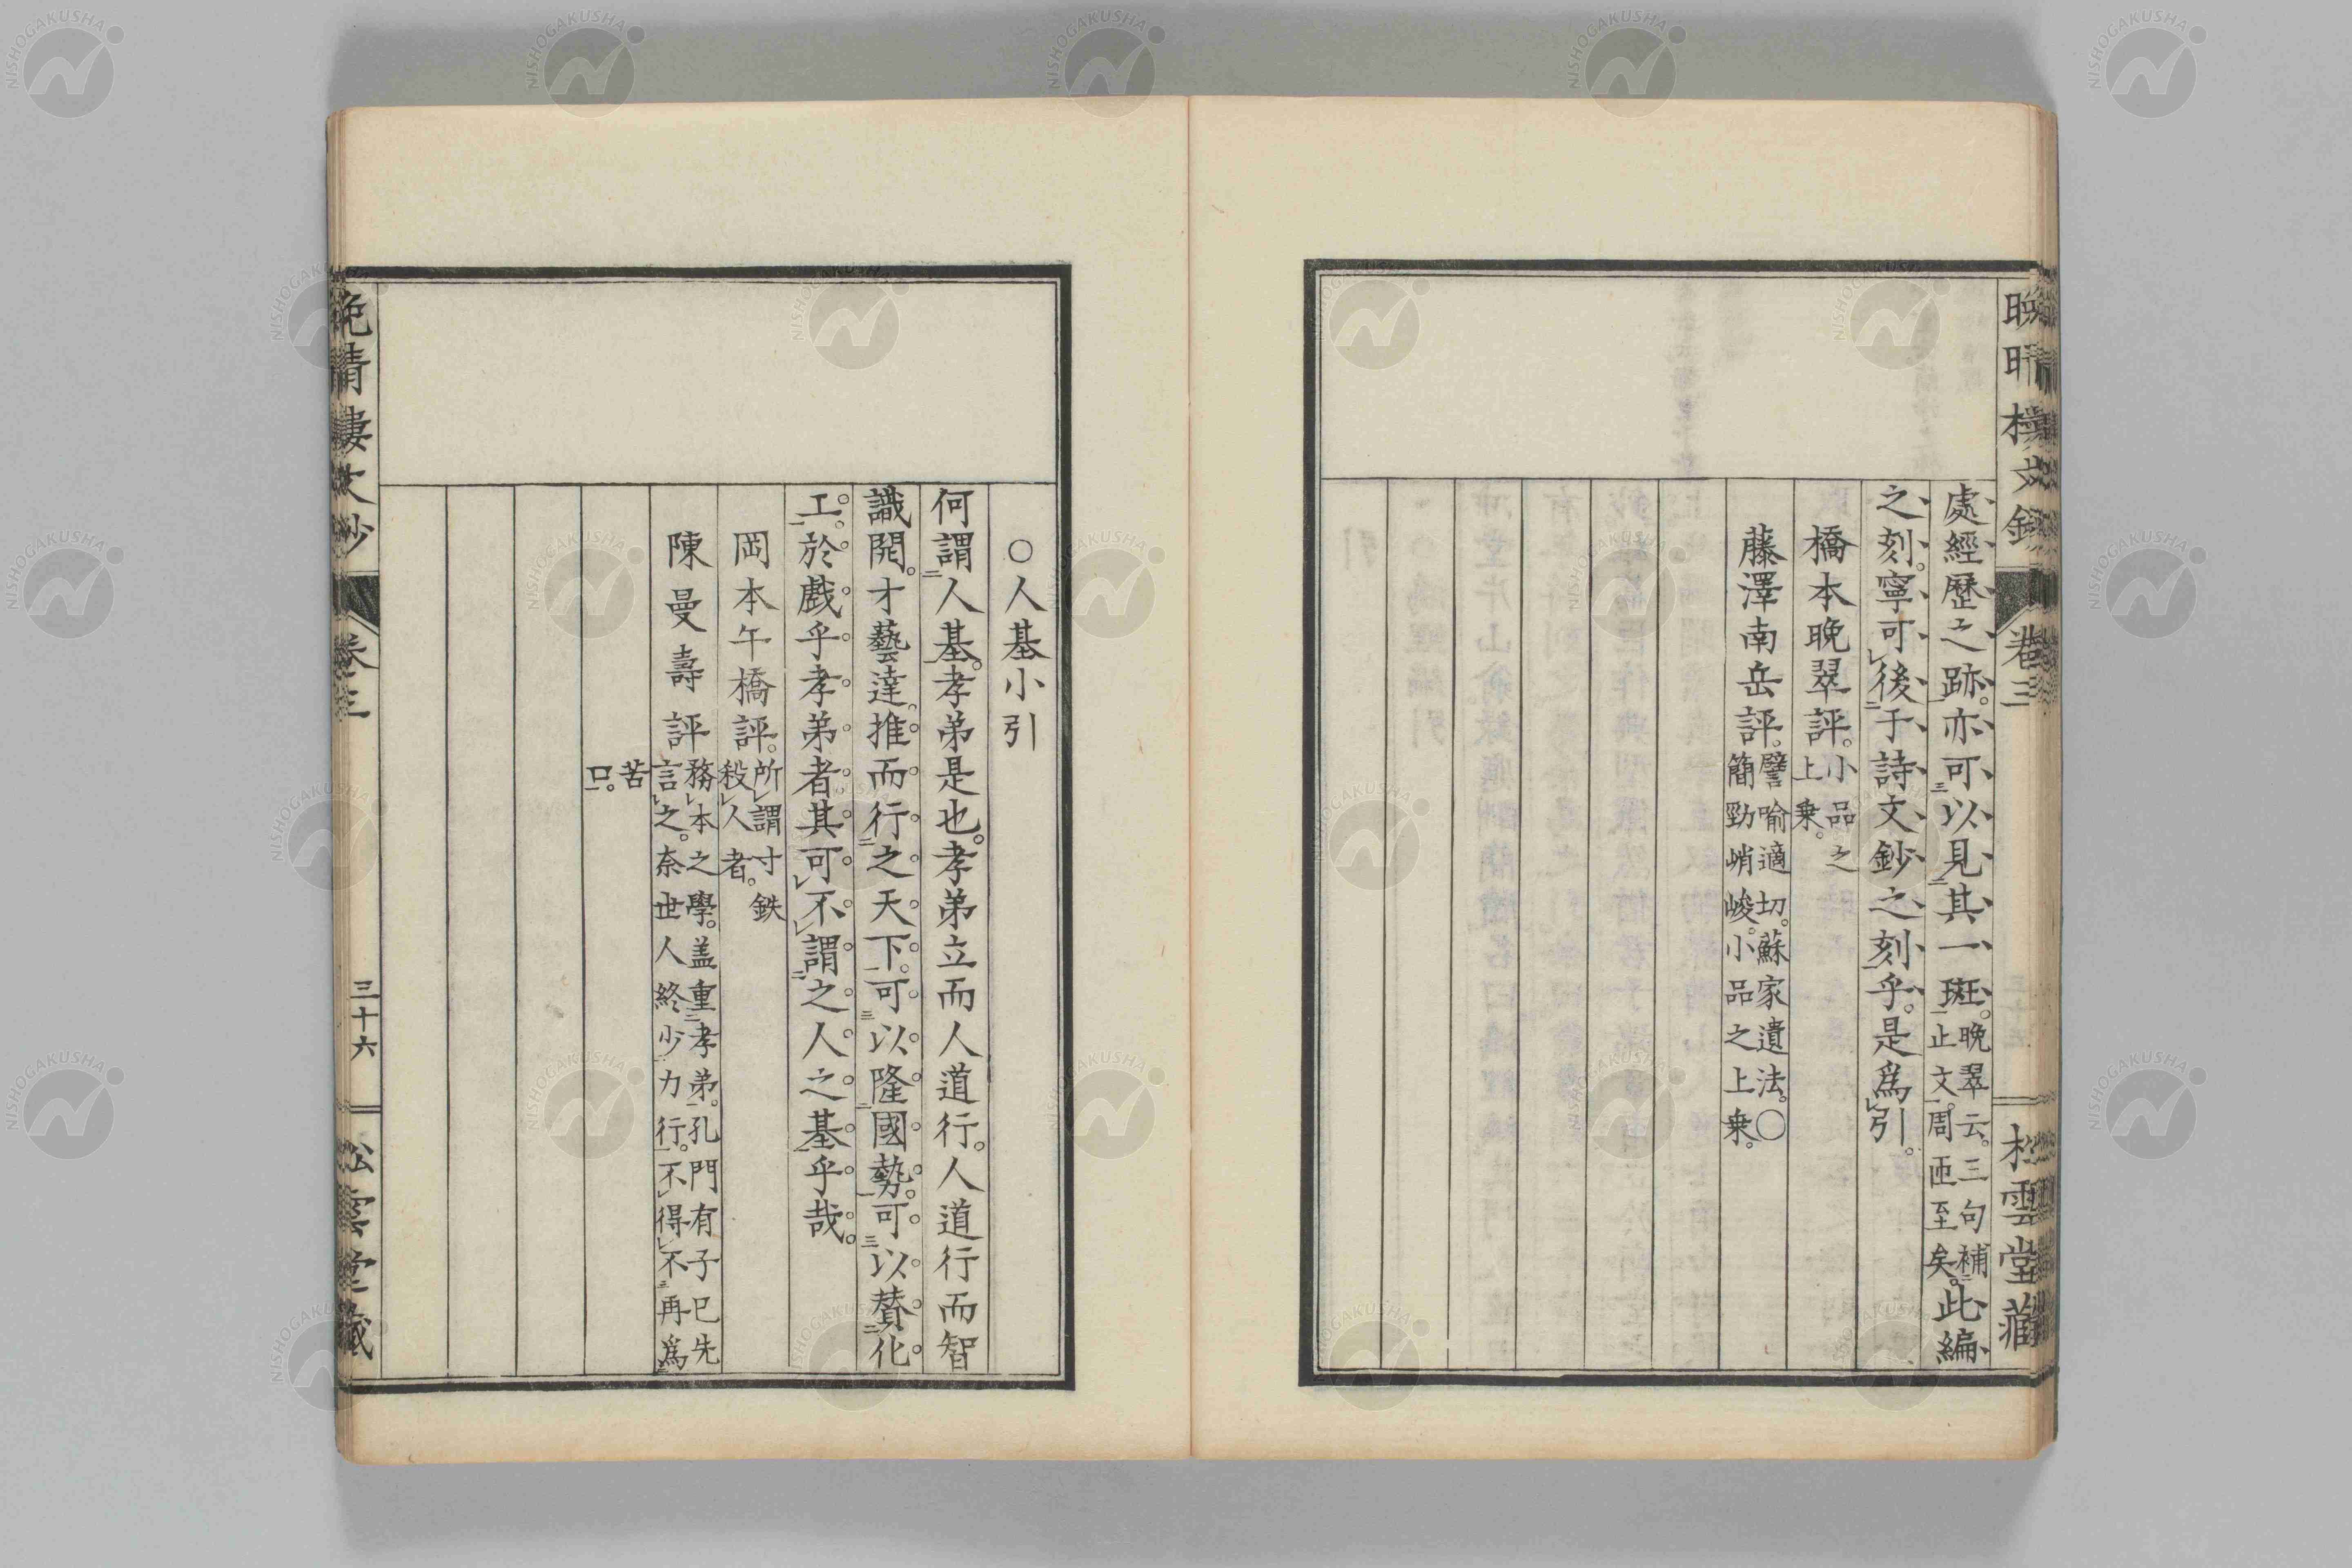 處經歷之跡。亦可以見其一斑。晚翠云。三句補
止文。周匝至矣。此編
之刻。寧可後于詩文鈔之刻乎。是爲引。
橋本晚翠評。小品之
上乗。
藤澤南岳評。譬喻適切。蘇家遺法。〇
簡勁峭峻。小品之上乗。
卷三
松雲堂藏
〇人基小引
何謂人基。孝弟是也。孝弟立而人道行。人道行而智
識開。才藝達。推而行之天下。可以隆國勢。可以賛化
工。於戲乎孝弟者其可不謂之人之基乎哉。
岡本午橋評。所謂寸鉄
殺人者。
陳曼壽評 務本之學。盖重孝弟。孔門有子已先
言之。奈世人終少力行。不得不再爲
苦
口。
晚晴樓文鈔
卷三
三十六
松雲堂藏
NISHOGAKUSHA